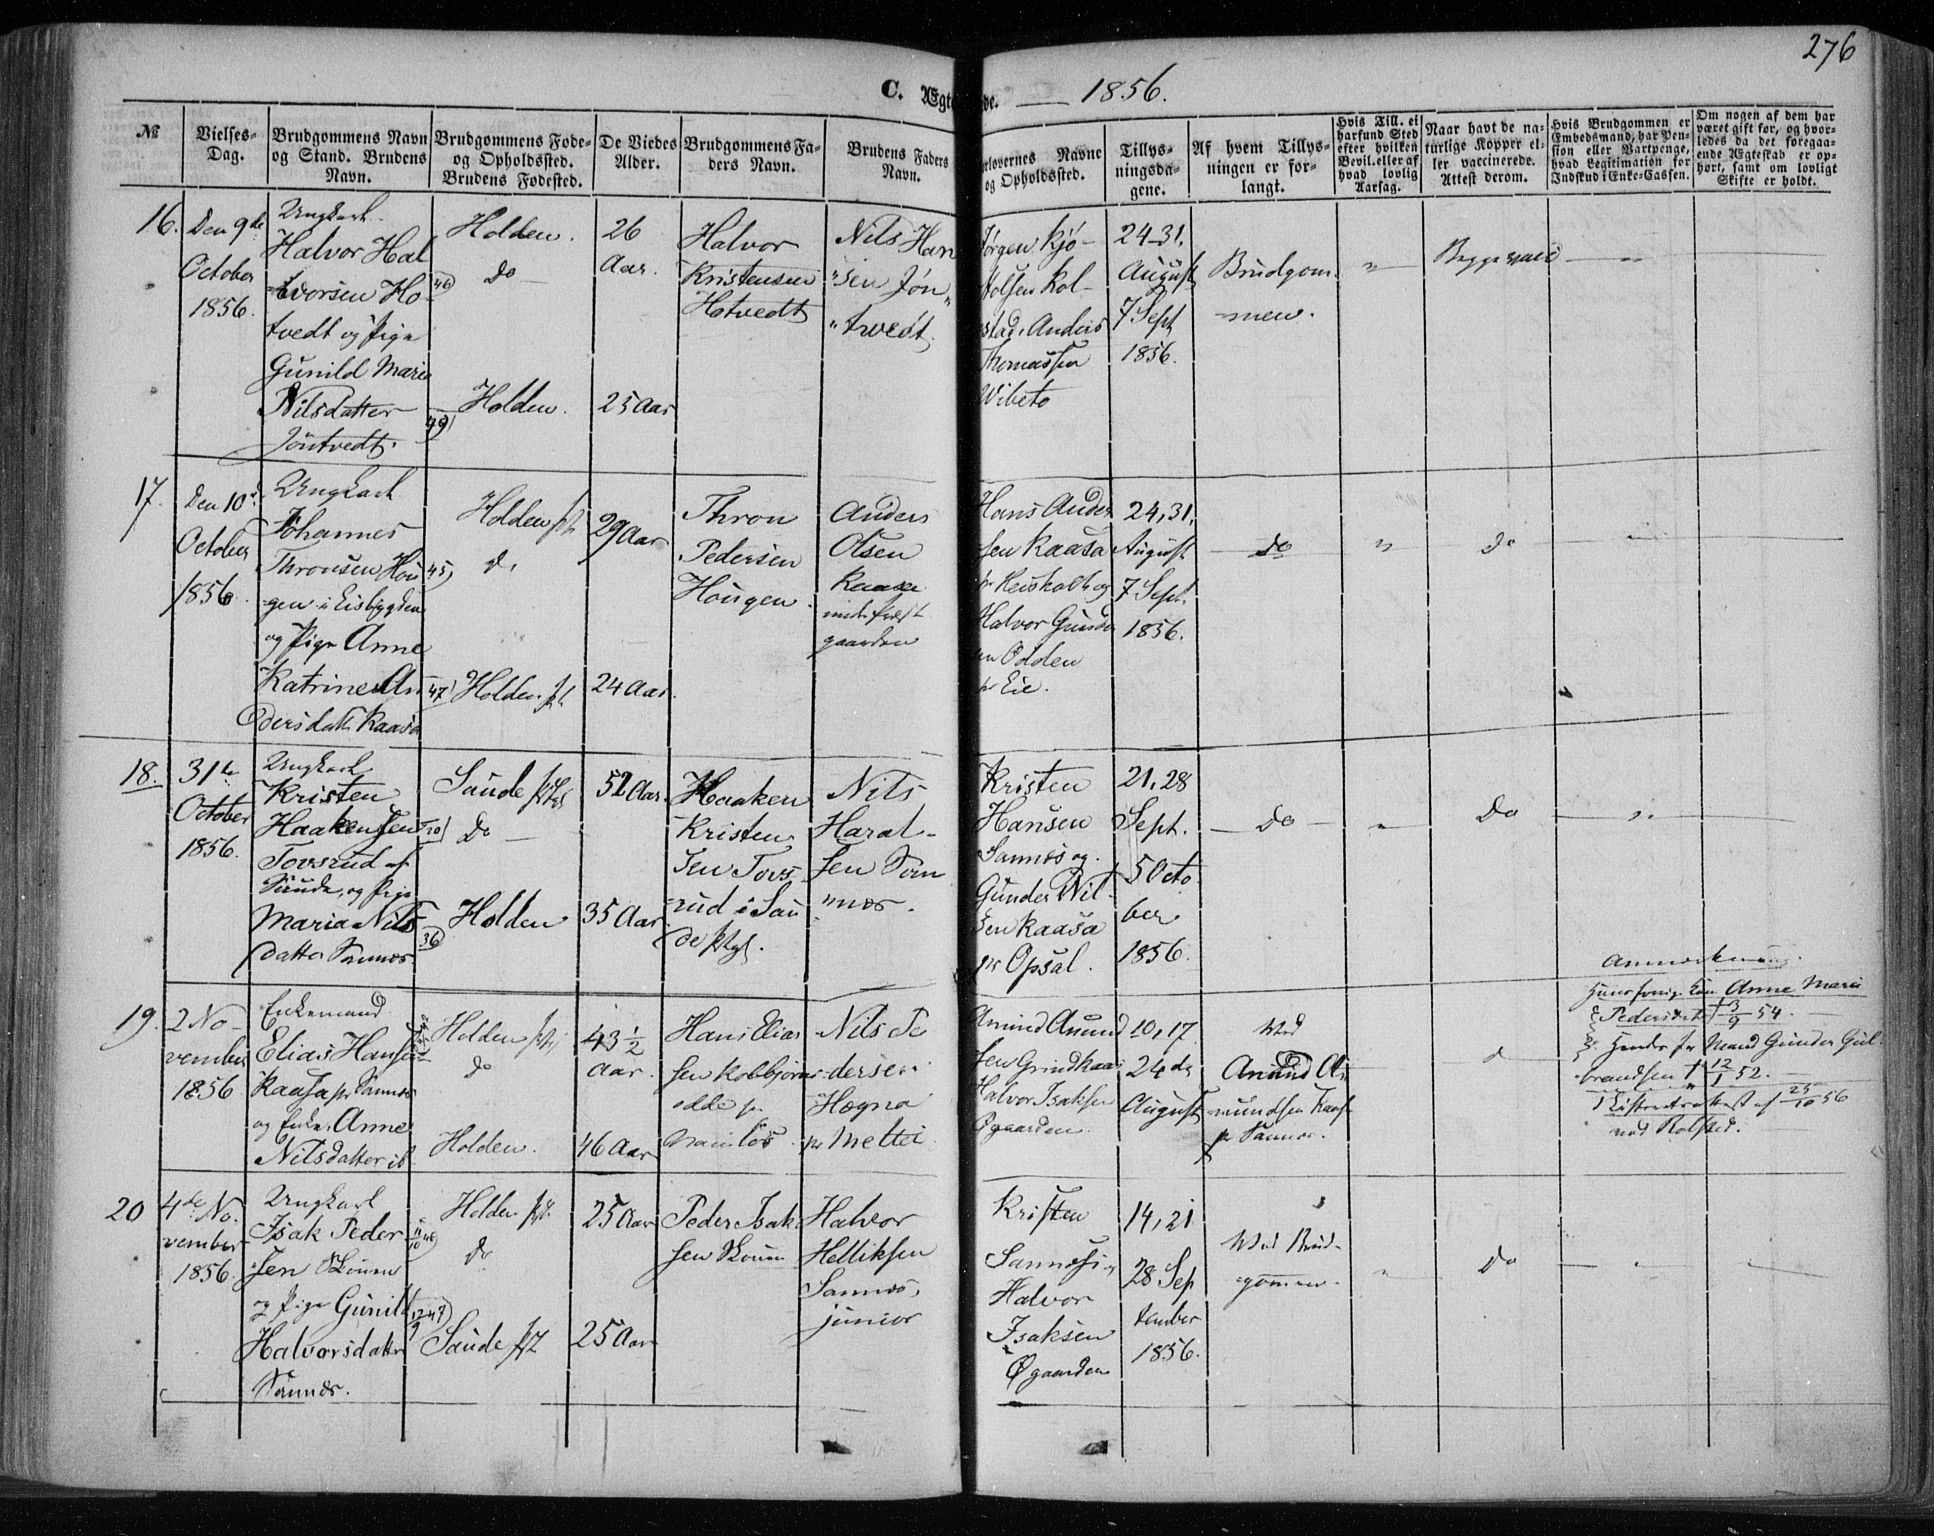 276
C. Ægte
de. — 1856.
No
Vielses-
Dag.
Brudgommens Navn
og Stand. Brudens
Navn.
Brudgommens Føde-
og Opholdssted.
Brudens Fødested.
De Viedes
Alder.
Brudgommens Fa-
ders Navn.
Brudens Faders
Navn.
orlovernes Navne
og Opholdssted.
Tillys-
ningsda-
gene.
Af hvem Tillys-
ningen er for-
langt.
Hvis Till. ei
har fund. Sted
efter hvilken
Bevil. eller af
hvad lovlig
Aarsag.
Naar havt de na-
turlige Kopper el-
ler vaccinerede.
Attest derom.
Hvis Brudgommen er
Embedsmand, har Pen-
sion eller Vartpenge,
hvad Legitimation for
Indskud i Enke-Cassen.
Om nogen af dem har
været gift før, og hvor-
ledes da det foregaa-
ende Ægteskab er op-
hørt, samt om lovligt
Skifte er holdt.
16.
Den 9de
October
1856.
Ungkarl
Halvor Hal
vorsen Ho-
tvedt og Pige
Gunild Marie
Nilsdatter
Jøntvedt.
46)
49)
Holden.
do —
Holden.
26
Aar.
25 Aar
Halvor
Kristensen
Hotvedt
Nils Han
"sen Jøn"
"tvedt.
Jørgen Kjø-
stolsen Kol-
stad, Anders
Thomassen
Wibeto
24-31.
August
7 Sept
1856.
Brudgom-
men.
"
Begge vacc
"
17.
Den 10d
October
1856.
Ungkarl
Johannes
Thronsen Hou
gen i Eisbygden
og Pige Anne
Katrine An
dersdatt. Kaasa
45)
47)
Holden pst
do
Holden pst
29 Aar
24 Aar.
Thron
Pedersen
Hougen.
Anders
Olsen
Kaasa
under Præst
gaarden
Hans Ander
sen Kaasa
Halvor Gunder
en Odden
pr Eie.
24, 31,
August
7 Sept.
1856.
do
"
do
18.
31te
October
1856.
Ungkarl
Kristen
Haakensen
Tovsrud af
Saude, og Pige
Maria Nils
datter Sannæs.
20)
36
Saude pstgl
Do —
Holden
52 Aar.
35 Aar.
Haaken
Kristen
sen Tovs
rud i Sau
de pstgl.
Nils
Haral-
sen San
"næs.
Kristen
Hansen
Sannæs og
Gunder Nil
sen Kaasa
pr Opsal.
21, 28
Sept.
5 Octo
ber
1856.
do
"
Do
"
19.
2 No-
vember
1856
Enkemand
Elias Hansen
Kaasa pr Sannæs
og Enke Anne
Nilsdatter ib.
Holden pst
do
Holden.
43½
Aar.
46 Aar
Hans Elias
sen Kolbjørns-
odde pr
Namløs.
Nils Pe
dersen
Hogna
pr Mettei
Amund Amund
sen Grindkaas
Halvor Isaksen
Øgaarden.
10, 17.
24de
August
Ved
Amund A-
mundsen Kaasa
pr Sannæs.
do
Anmærkning.
Hans forrige Kone Anne Marie
Pedersdatt † 3/9 54. —
Hendes fr Mand Gunder Gul-
brandsen † 12/1 52. —
Skifteattest af 25/10 56
ved Rolsted.
20
4de No-
vember
1856.
Ungkarl
Isak Peder
sen Skoum
og Pige Gunild
Halvorsdatter
Sannæs.
Holden pst.
do
Saude pst
25 Aar
25 Aar
Peder Isak
sen Skoum
Halvor
Helliksen
Sannæs,
junior
Kristen
Sannæs
Halvor
Isaksen
Øgaarden
14, 21
28 Sep
tember
1856.
Ved Brud-
gommen.
"
do